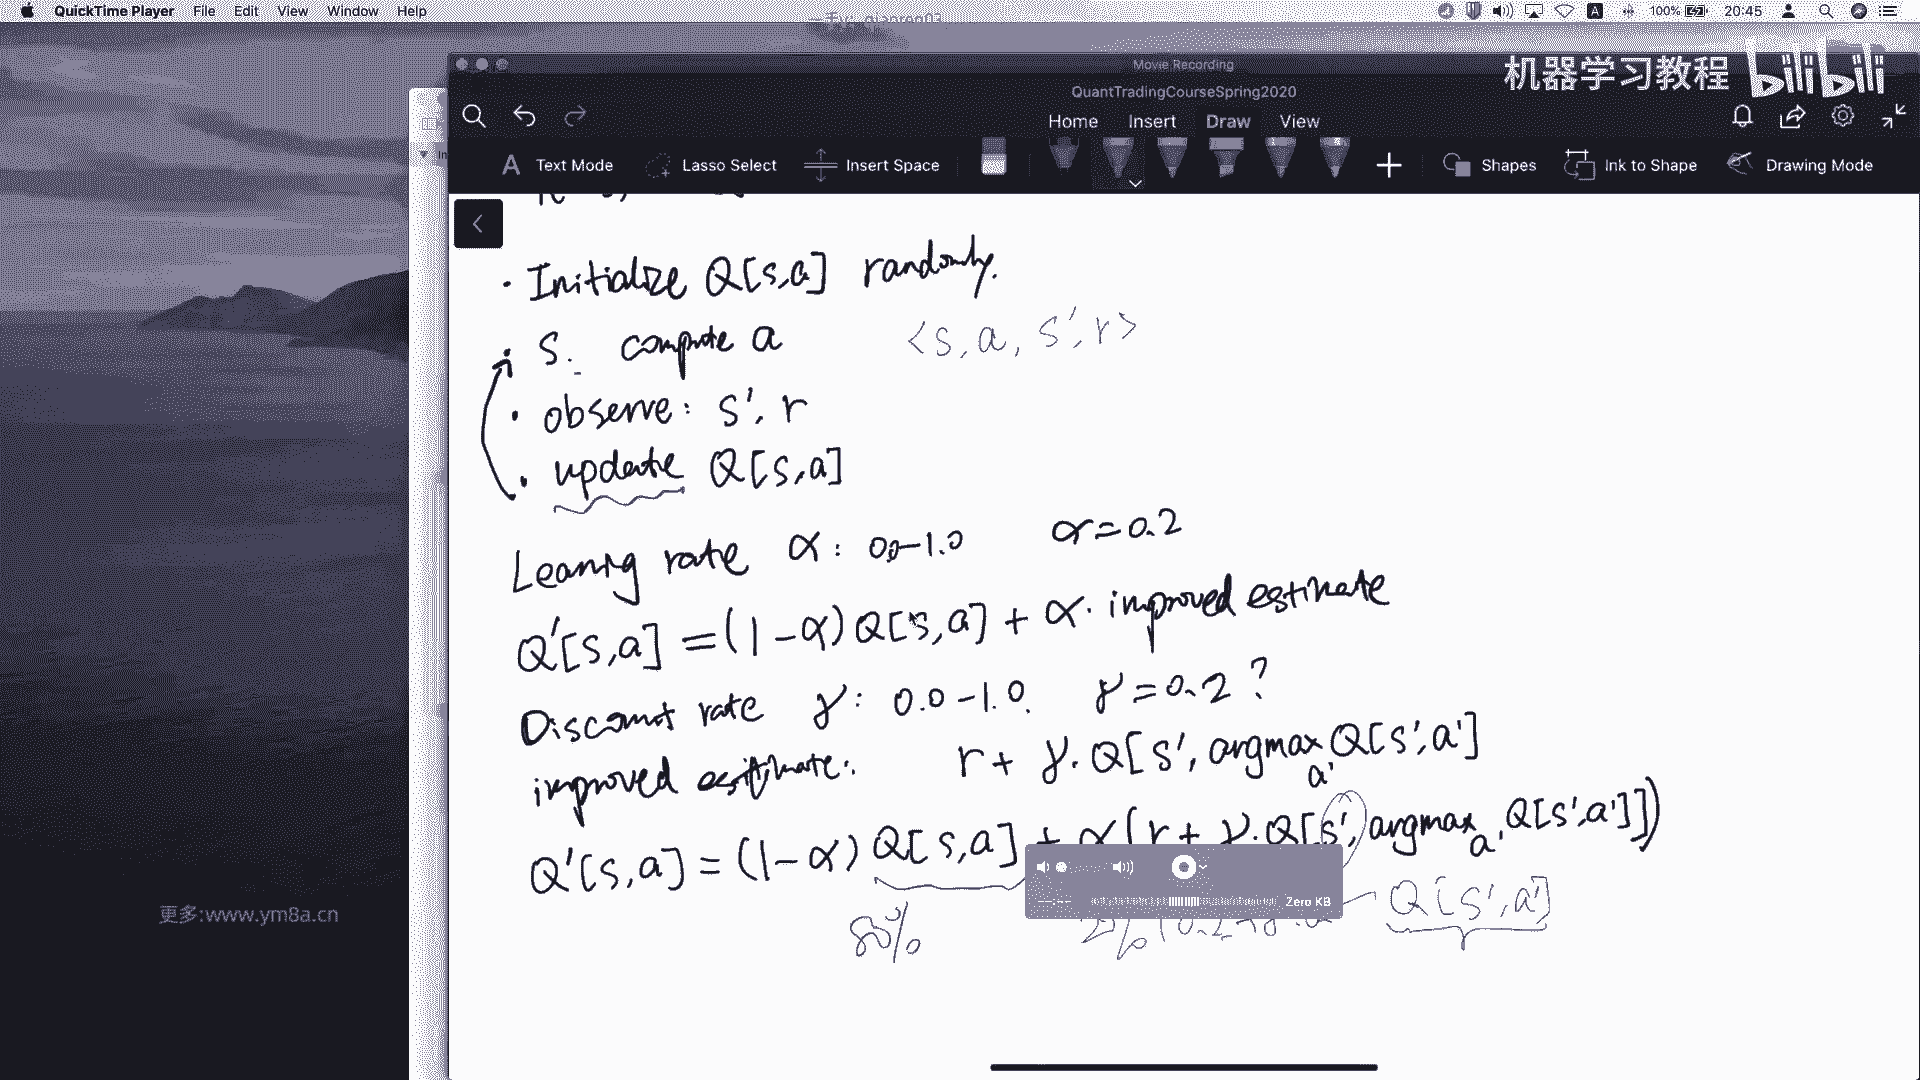 QuickTime Player File Edit View Window Help 100% 20:45
Movie Recording
机器学习教程 bilibili
QuantTradingCourseSpring2020
Home Insert Draw View
A Text Mode Lasso Select Insert Space Shapes Ink to Shape Drawing Mode
· Initialize Q[s,a] randomly.
· S. compute a <s, a, s', r>
· observe: s', r
· update Q[s,a]
Learning rate α: 0.0-1.0 α=0.2
Q'[s,a] = (1-α) Q[s,a] + α· improved estimate
Discount rate γ: 0.0-1.0. γ=0.2?
improved estimate: r + γ· Q[s', argmax a' Q[s',a']
Q'[s,a] = (1-α) Q[s,a] + α(r + γ·Q[s', argmax a' Q[s',a']])
Zero KB
80% Q[s',a']
更多:www.ym8a.cn